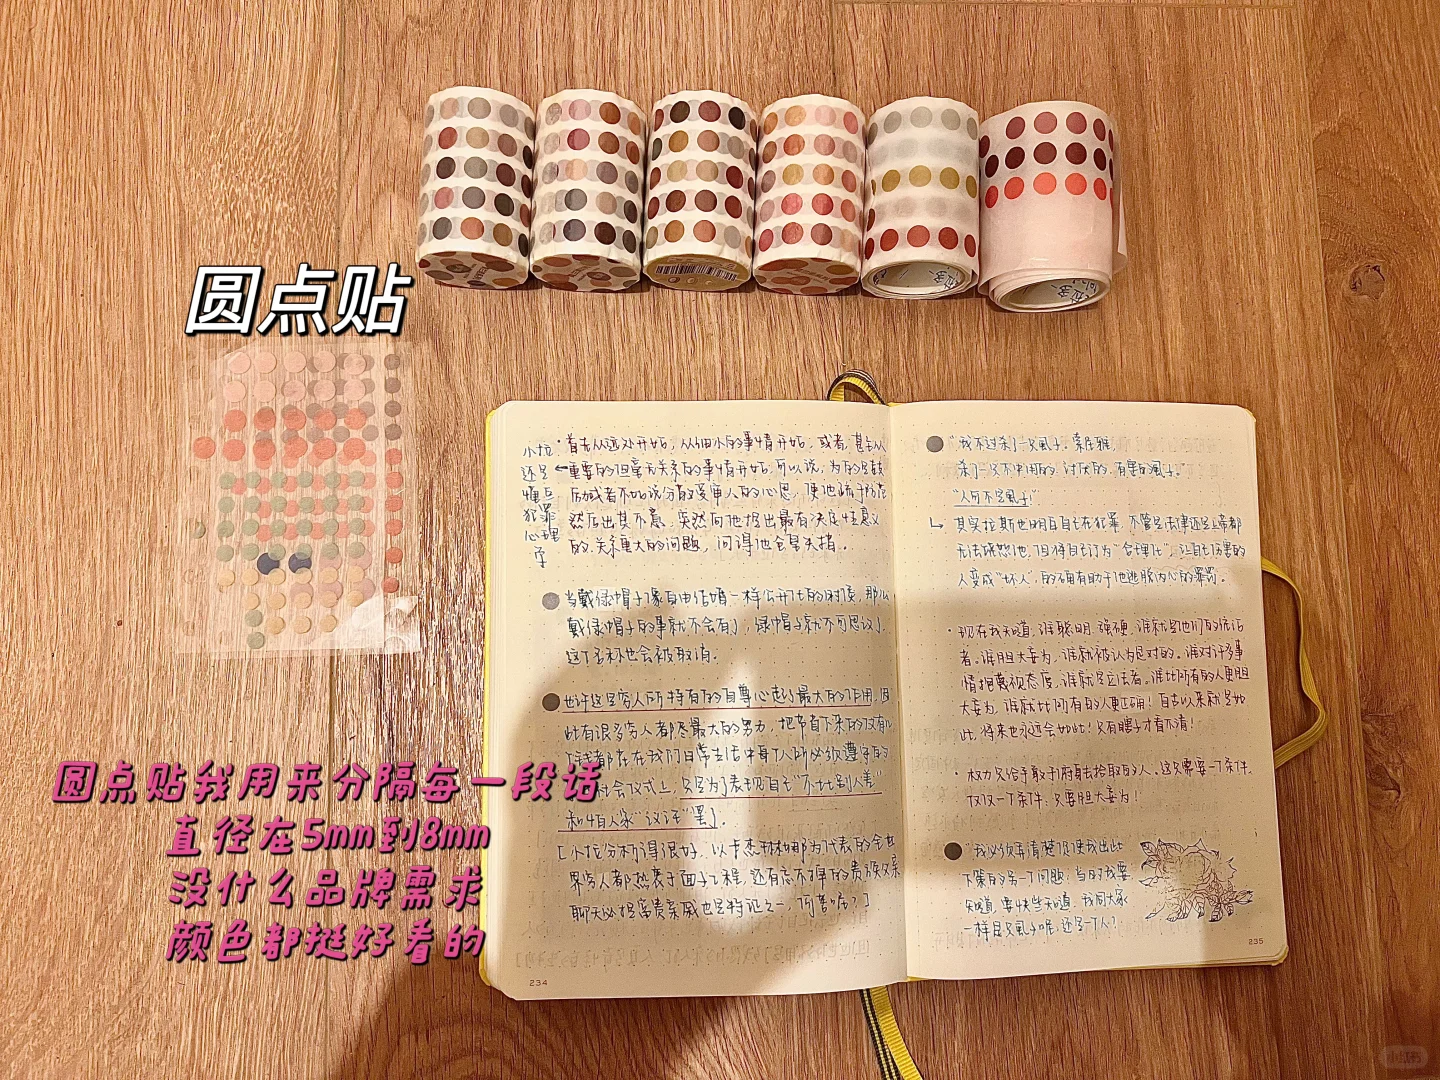 圆点贴
圆点贴我用来分隔每一段话
直径在5mm到8mm
没什么品牌需求
颜色都挺好看的
小拉
还是
懂点
犯罪
心理
学
首先从远处开始，从细小的事情开始，或者，甚至从
重要的但毫无关系的事情开始，可以说，为的是鼓
励或者不如说分散受审人的心思，使他疏于防范
然后出其不意，突然向他提出最有决定性意义
的、关系重大的问题，问得他仓皇失措。
当戴绿帽子像自由结婚一样公开化的时候，那么
戴绿帽子的事就不会有了，绿帽子就不可思议了
这个名称也会被取消。
也许这是穷人所特有的自尊心起了最大的作用，因
此有很多穷人都尽最大的努力，把节省下来的仅有的
钱都花在我们日常生活中每个人所必须遵守的
社会仪式上，只是为了表现自己"不比别人差"
和怕人家"议论"罢了。
[小拉分析得很好，以卡杰琳娜为代表的全世
界穷人都热衷于面子工程，还有忘不掉的贵族父亲
聊天必提富贵亲戚也是特征之一，何苦呢？]
234
"我不过杀了一只虱子，索尼雅，
杀了一只不中用的、讨厌的、有害的虱子。"
"人可不是虱子！"
其实拉斯也明白自己在犯罪，不管是法律还是上帝都
无法饶恕他，但将自己行为"合理化"，让自己伤害的
人变成"坏人"，的确有助于他逃脱内心的罪恶。
现在我知道，谁聪明、强硬，谁就是他们的统治
者。谁胆大妄为，谁就被认为是对的。谁对许多事
情抱蔑视态度，谁就是立法者。谁比所有的人更胆
大妄为，谁就比所有的人更正确！自古以来就是如
此，将来也永远会如此！只有瞎子才看不清！
权力只给予敢于俯首去拾取的人。这只需要一个条件，
仅仅一个条件：只要胆大妄为！
"我必须弄清楚促使我出此
下策的另一个问题：当时我要
知道，要快些知道，我同大家
一样是只虱子呢，还是一个人？
235